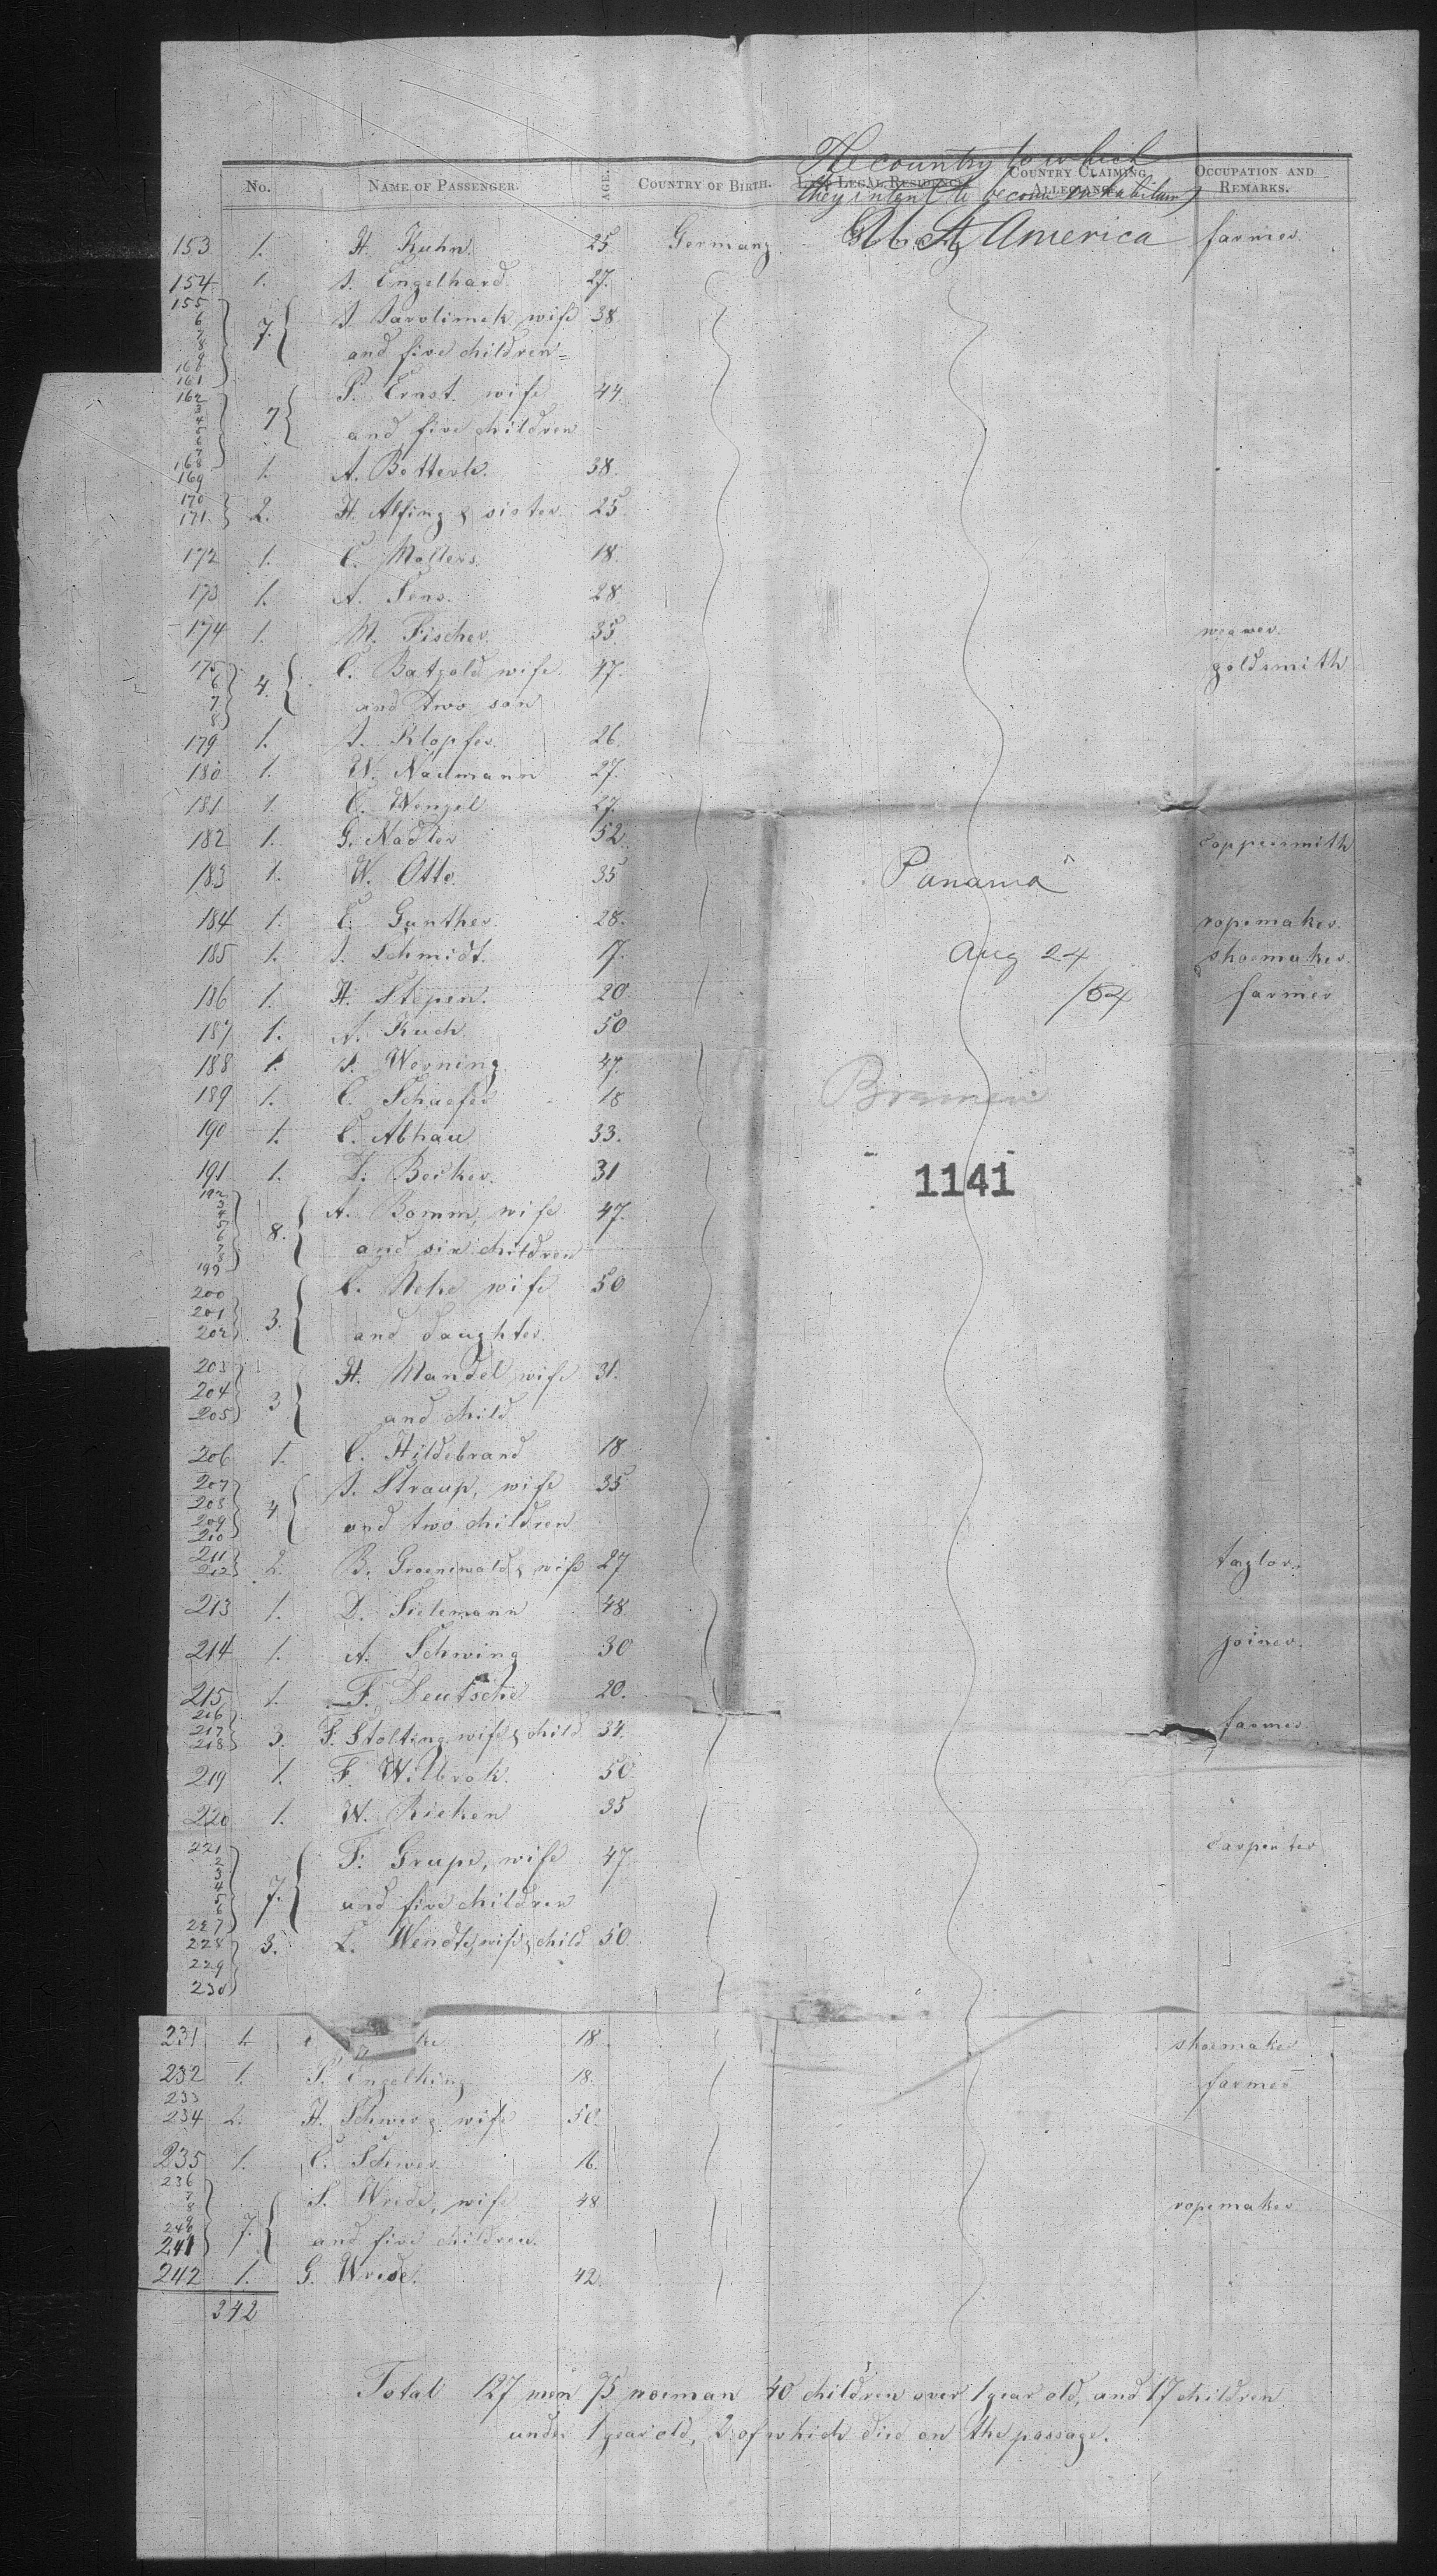 The country to which
No. NAME OF PASSENGER. AGE. COUNTRY OF BIRTH. LAST LEGAL RESIDENCE. COUNTRY CLAIMING ALLEGIANCE. OCCUPATION AND REMARKS.
they intent to become inhabitans
153 1. H. Kuhn. 25 Germany U. St. America farmer.
154 1. J. Engelhard. 27.
155 6 7 8 9 160 161 7. J. Jarolimek wife 38
and five children =
162 3 4 5 6 7 168 7 P. Ernst. wife 44.
and five children
169 1. A. Betterle. 38.
170 171. 2. H. Alfing & sister. 25.
172 1. C. Mollers. 18.
173 1. A. Sens. 28
174 1. M. Fischer. 35 weawer.
175 6 7 8 4. C. Batzold wife. 47. goldsmith
and two son
179 1. J. Klopfer. 26.
180 1. W. Naumann 27.
181 1. C. Wenzel 27.
182 1. G. Nadler 52. Coppersmith
183 1. W. Otto. 35 Panama
184 1. C. Gunther. 28. ropemaker.
185 1. J. Schmidt. 17. Aug 24 shoemaker.
186 1. H. Stepen. 20. /54 farmer
187 1. A. Kuch. 50
188 1. J. Werning 47.
189 1. C. Schaefer 18 Bremen
190 1. C. Abhau 33.
191 1. L. Becker. 31 1141
192 3 4 5 6 7 8 199 8. A. Bomm, wife 47.
and six children
200 201 202 3. C. Nehe wife 50
and daughter.
203 204 205 3 H. Mandel wife 31.
and child
206 1. C. Hildebrand 18
207 208 209 210 4 J. Straup, wife 35
and two children
211 212 2. B. Groenewald & wife 27 taylor.
213 1. D. Sielemann 48
214 1. A. Schwing 30 joiner.
215 1. F. Deutsche 20.
216 217 218 3. F. Stolting wife & child 34. farmer
219 1. F. Wilbrok. 50.
220 1. W. Rieken 35
221 2 3 4 5 6 227 7. F. Grupe, wife 47 Carpenter
and five children
228 229 230 3. L. Wendte, wife & child 50.
231 1. 18 shoemaker
232 1. S. Engelking 18. farmer
233 234 2. H. Schwer & wife 50.
235 1. C. Schwer. 16.
236 7 8 9 240 241 7. S. Wrede, wife 48 ropemaker
and five children.
242 1. G. Wrede. 42.
242
Total 127 men 75 woeman 40 children over 1 year old, and 17 children
under 1 year old, 2 of which die on the passage.